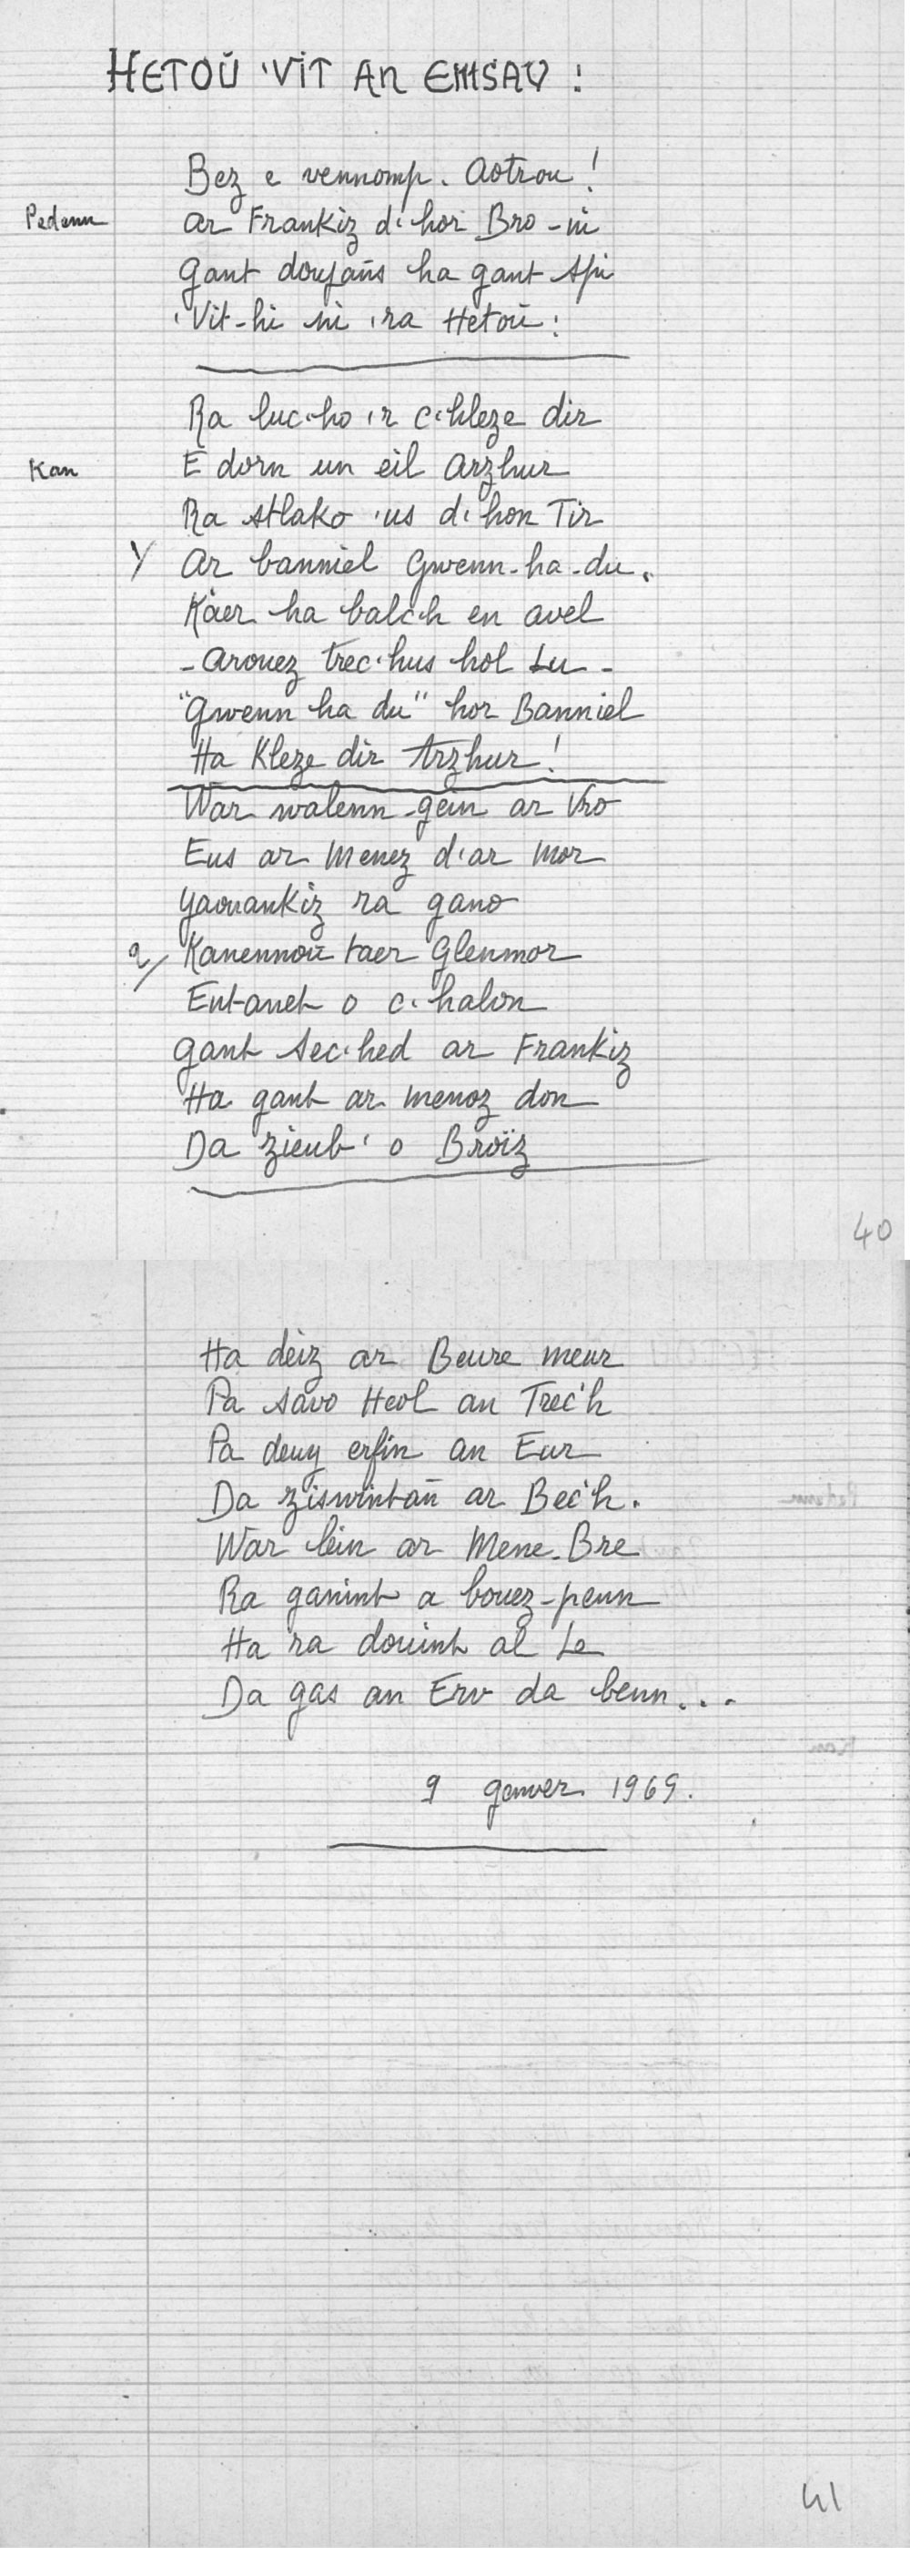 HETOÙ 'VIT AN EMSAV !
Bez e vennomp. Aotrou !
Pedenn
Ar Frankiz d'hor Bro-ni
Gant doujañs ha gant Spi
'Vit-hi ni 'ra Hetoù :
Ra luc'ho 'r c'hleze dir
Kan
E dorn un eil Arzhur
Ra stlako 'us d'hon Tir
1/ Ar banniel Gwenn-ha-du.
Kaer ha balc'h en avel
- Arouez trec'hus hol Lu -
"Gwenn ha du" hor Banniel
Ha Kleze dir Arzhur !
War walenn-gein ar Vro
Eus ar Menez d'ar Mor
Yaouankiz ra gano
2/ Kanennoù taer Glenmor
Entanet o c'halon
Gant Sec'hed ar Frankiz
Ha gant ar menoz don
Da zieub' o Broïz
40
Ha deiz ar Beure meur
Pa savo Heol an Trec'h
Pa deuy erfin an Eur
Da ziswintañ ar Bec'h.
War lein ar Mene-Bre
Ra ganint a bouez-penn
Ha ra douint al Le
Da gas an Erv da benn...
9 genver 1969.
41